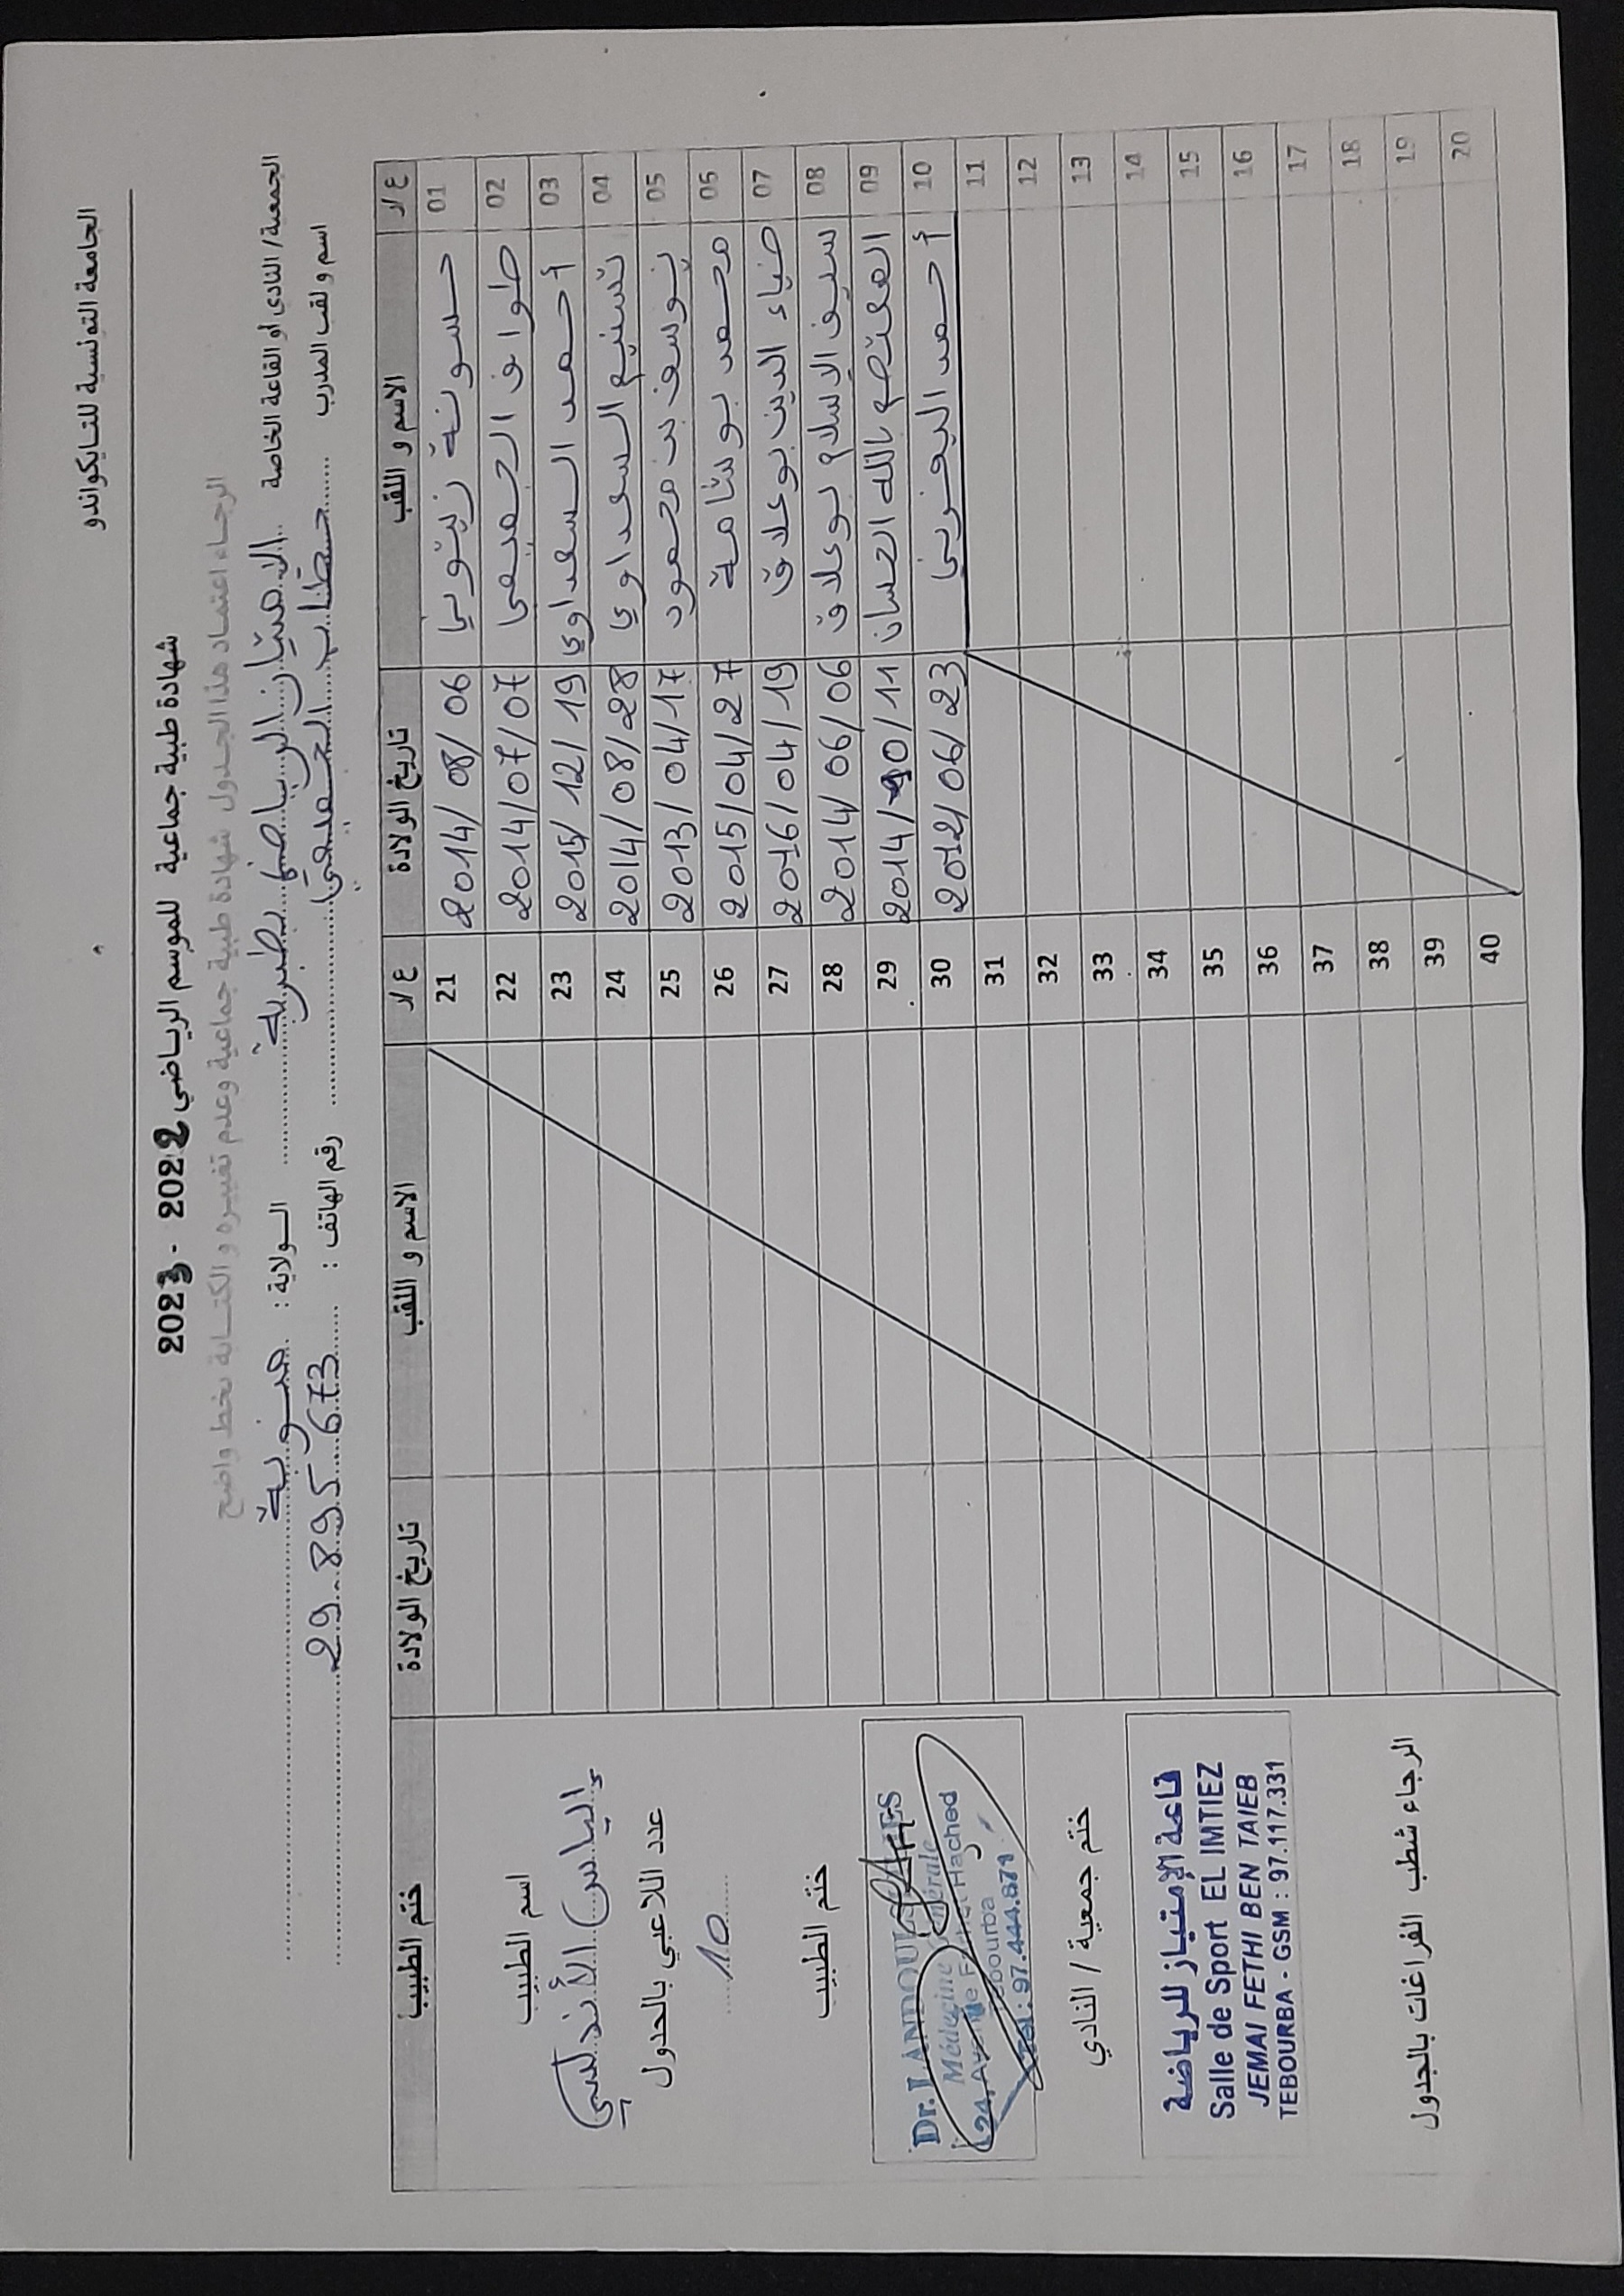 الجامعة التونسية للتايكواندو
شهادة طبية جماعية للموسم الرياضي 2022 - 2023
الرجاء اعتماد هذا الجدول شهادة طبية جماعية وعدم تغييره و الكتابة بخط واضح
الجمعية/ النادي او القاعة الخاصة الامتياز الرياضي بطبربة الولاية : منوبة
اسم و لقب المدرب الجميعي رقم الهاتف : 29 895 673
ع/ر الاسم و اللقب تاريخ الولادة ع/ر الاسم و اللقب تاريخ الولادة ختم الطبيب
01 حسونة زيتوني 2014/08/06 21
02 طواف الجميعي 2014/07/07 22
03 أحمد السعداوي 2015/12/19 23
04 تسنيم السعداوي 2014/08/28 24
05 يوسف بن محمود 2013/04/17 25
06 محمد بوشامة 2015/04/27 26
07 ضياء الدين بوعلاق 2016/04/19 27
08 سيف الإسلام بوعلاق 2014/06/06 28
09 المعتصم بالله الحسان 2014/10/11 29
10 أحمد اليفرني 2012/06/23 30
11 31
12 32
13 33
14 34
15 35
16 36
17 37
18 38
19 39
20 40
اسم الطبيب
إلياس الأندلسي
عدد اللاعبي بالجدول
10
ختم الطبيب
Dr. LANDOULSI
Médecine Générale
24, Avenue Farhat Hached
Tebourba
Tél : 97.444.871
ختم جمعية / النادي
قاعة الإمتياز للرياضة
Salle de Sport EL IMTIEZ
JEMAI FETHI BEN TAIEB
TEBOURBA - GSM : 97.117.331
الرجاء شطب الفراغات بالجدول